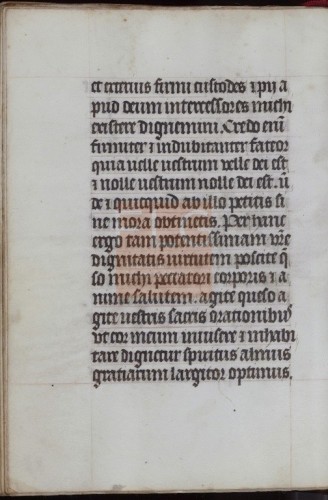 et crterius firmi custodes ⁊ pij a
pud deum intercessores michi
existere dignemini. Credo eni̅
firmiter ⁊ indubitanter fateor
quia uelle uestrum velle dei est
⁊ nolle uestrum nolle dei est. u̅
de ⁊ quicquid ab illo petitis si
ne mora obtinetis. Per hanc
ergo tam potentissimam vr̅e
dignitatis uirtutem poscite q̅
so michi peccatori corporis ⁊ a
nime salutem. agite queso a
gite uestris sacris orationibus
vt cor meum inuisere ⁊ inhabi
tare dignetur spiritus almus
gratiarum largitor optimus.